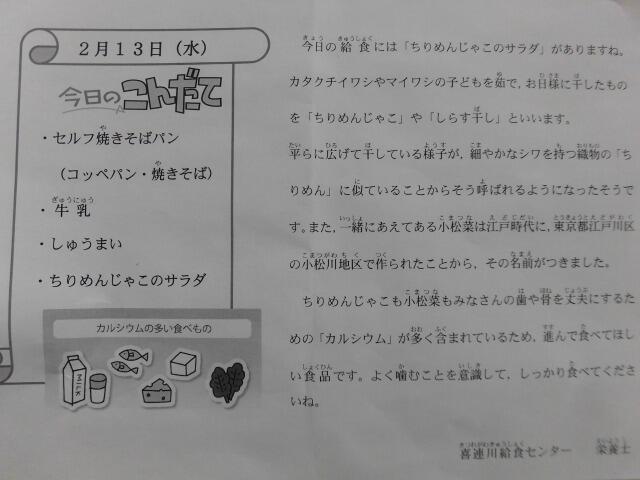 2月13日(水)
今日のこんだて
・セルフ焼きそばパン
(コッペパン・焼きそば)
・牛乳
・しゅうまい
・ちりめんじゃこのサラダ
カルシウムの多い食べもの
MILK
今日の給食には「ちりめんじゃこのサラダ」がありますね。
カタクチイワシやマイワシの子どもを茹で,お日様に干したもの
を「ちりめんじゃこ」や「しらす干し」といいます。
平らに広げて干している様子が,細やかなシワを持つ織物の「ち
りめん」に似ていることからそう呼ばれるようになったそうで
す。また,一緒にあえてある小松菜は江戸時代に,東京都江戸川区
の小松川地区で作られたことから,その名前がつきました。
ちりめんじゃこも小松菜もみなさんの歯や骨を丈夫にするた
めの「カルシウム」が多く含まれているため,進んで食べてほし
い食品です。よく噛むことを意識して,しっかり食べてくださ
いね。
喜連川給食センター 栄養士